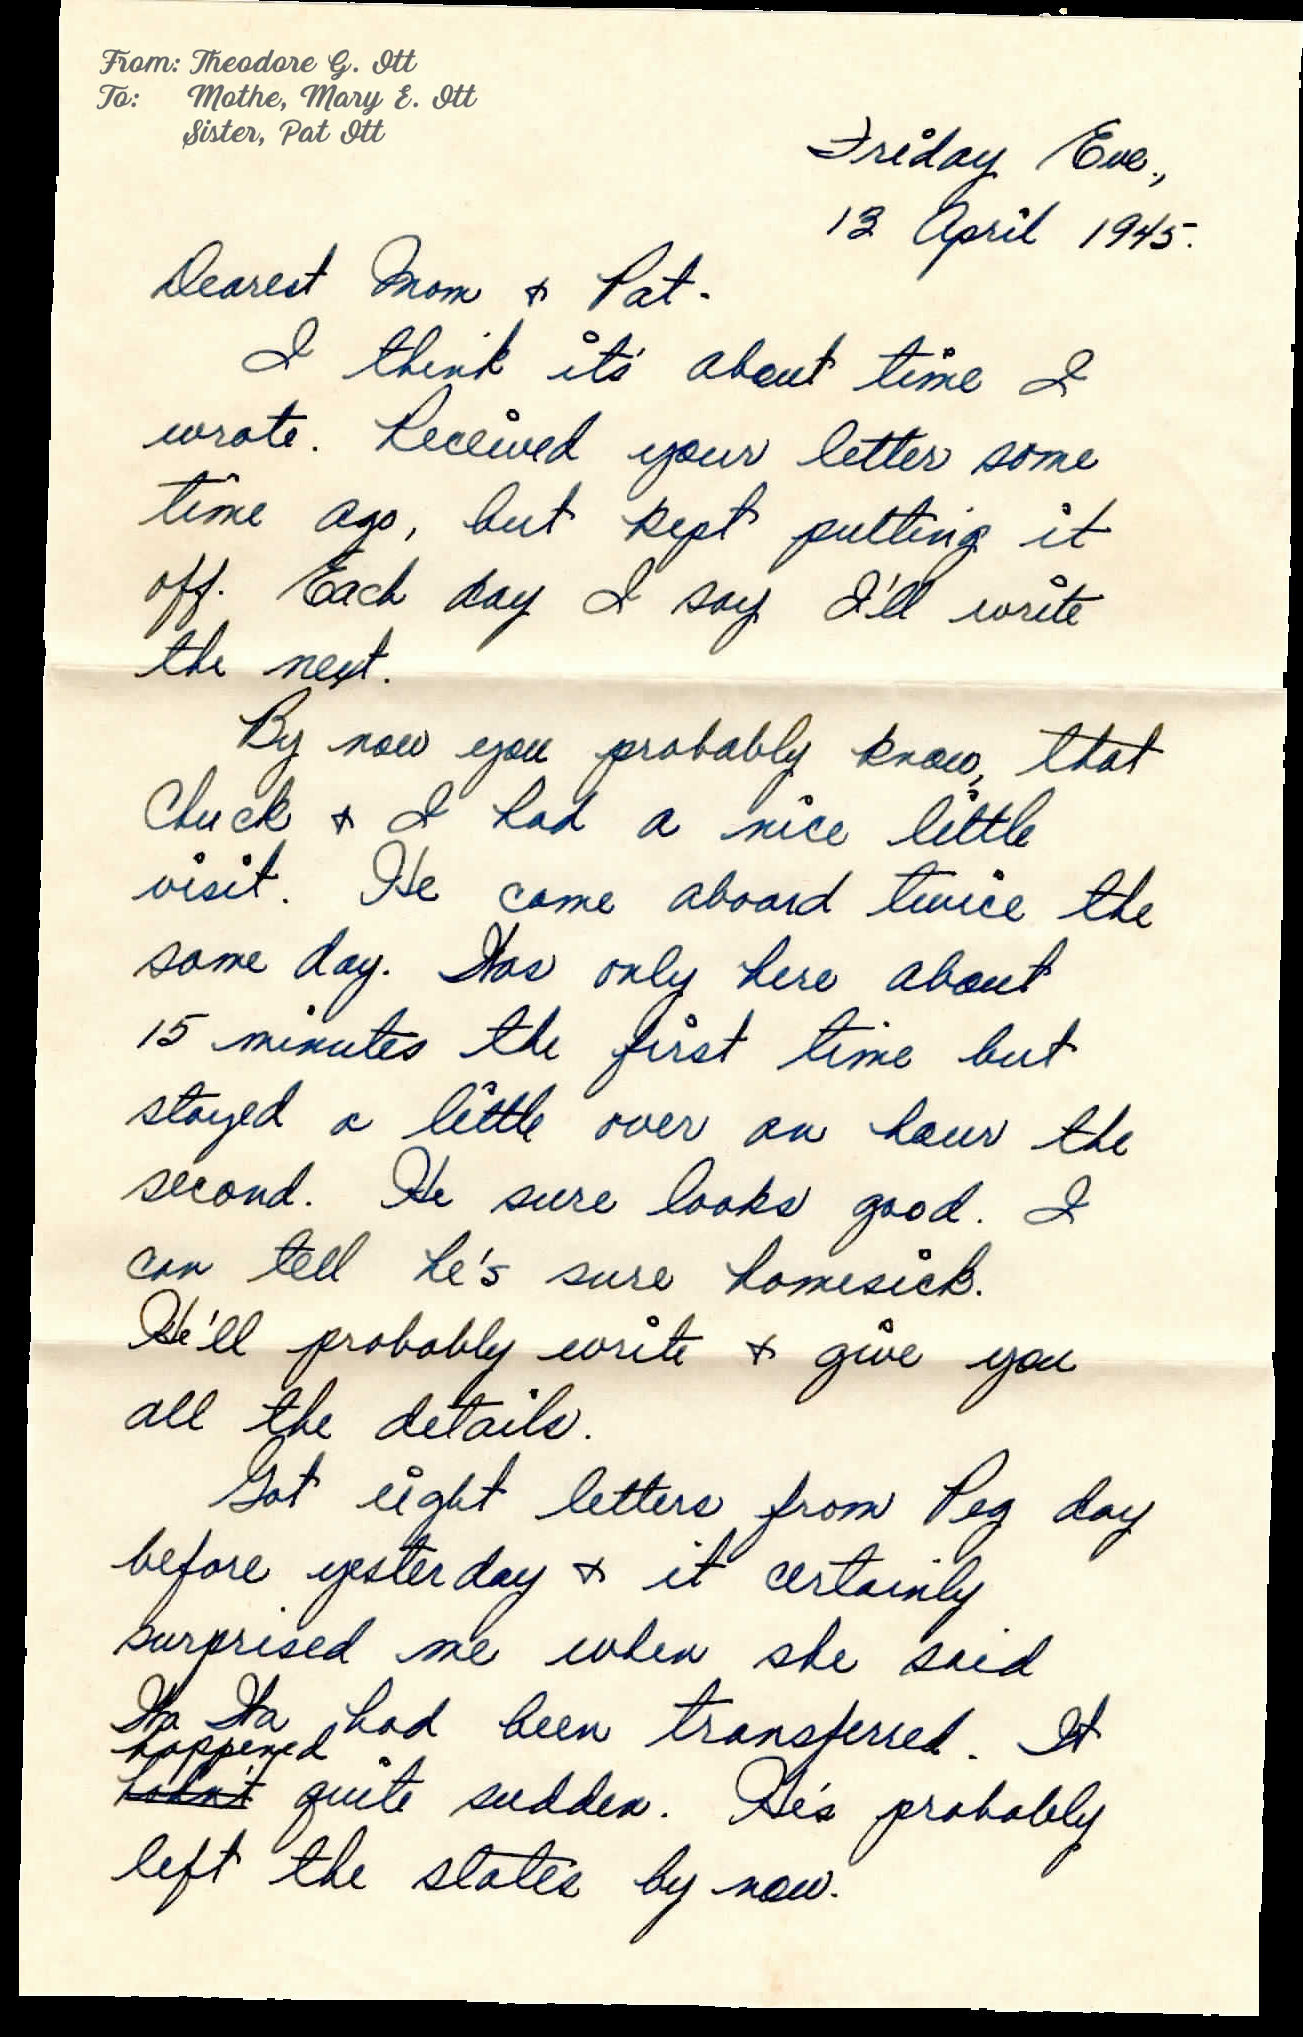 From: Theodore G. Ott
To: Mothe, Mary E. Ott
Sister, Pat Ott
Friday Eve.,
13 April 1945.
Dearest Mom & Pat.
I think it's about time I
wrote. Received your letter some
time ago, but kept putting it
off. Each day I say I'll write
the next.
By now you probably know, that
Chuck & I had a nice little
visit. He came aboard twice the
same day. Was only here about
15 minutes the first time but
stayed a little over an hour the
second. He sure looks good. I
can tell he's sure homesick.
He'll probably write & give you
all the details.
Got eight letters from Peg day
before yesterday & it certainly
surprised me when she said
Wa Wa had been transferred. It
happened
hadn't quite sudden. He's probably
left the states by now.